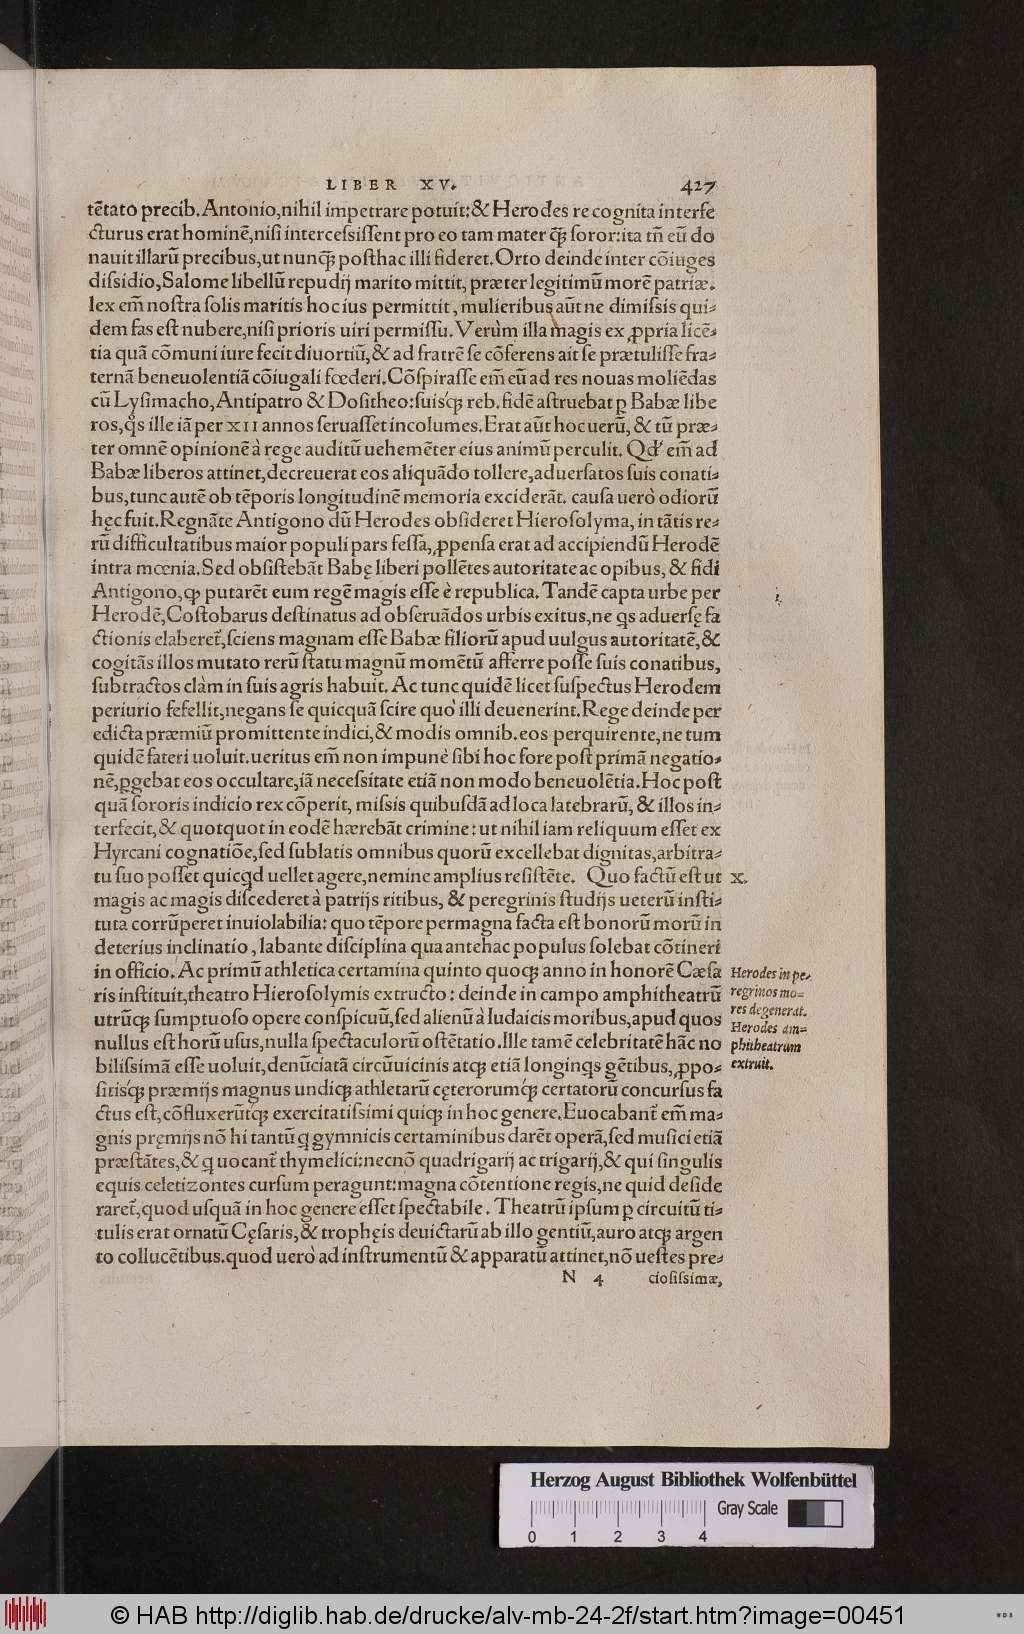 LIBER XV. 427
tẽtato precib. Antonio, nihil impetrare potuit: & Herodes re cognita interfe
cturus erat hominẽ, nisi intercessissent pro eo tam mater q̃ꝫ soror: ita tñ eũ do
nauit illarũ precibus, ut nunq̃ꝫ posthac illi fideret. Orto deinde inter cõiuges
dissidio, Salome libellũ repudij marito mittit, præter legitimũ morẽ patriæ.
lex em̃ nostra solis maritis hoc ius permittit, mulieribus aũt ne dimissis qui-
dem fas est nubere, nisi prioris uiri permissu. Verùm illa magis ex ꝓpria licẽ-
tia quã cõmuni iure fecit diuortiũ, & ad fratrẽ se cõferens ait se prætulisse fra-
ternã beneuolentiã cõiugali fœderi. Cõspirasse em̃ eũ ad res nouas moliẽdas
cũ Lysimacho, Antipatro & Dositheo: suisq́ꝫ reb. fidẽ astruebat ꝑ Babæ libe
ros, q̃s ille iã per XII annos seruasset incolumes. Erat aũt hoc uerũ, & tũ præ-
ter omnẽ opinionẽ à rege auditũ uehemẽter eius animũ perculit. Qđ em̃ ad
Babæ liberos attinet, decreuerat eos aliquãdo tollere, aduersatos suis conati-
bus, tunc autẽ ob tẽporis longitudinẽ memoria exciderãt. causa uerò odiorũ
hęc fuit. Regnãte Antigono dũ Herodes obsideret Hierosolyma, in tãtis re-
rũ difficultatibus maior populi pars fessa, ꝓpensa erat ad accipiendũ Herodẽ
intra mœnia. Sed obsistebãt Babę liberi pollẽtes autoritate ac opibus, & fidi
Antigono, ꝙ putarẽt eum regẽ magis esse è republica. Tandẽ capta urbe per
Herodẽ, Costobarus destinatus ad obseruãdos urbis exitus, ne qs aduersę fa
ctionis elaberet̃, sciens magnam esse Babæ filiorũ apud uulgus autoritatẽ, &
cogitãs illos mutato rerũ statu magnũ momẽtũ afferre posse suis conatibus,
subtractos clàm in suis agris habuit. Ac tunc quidẽ licet suspectus Herodem
periurio fefellit, negans se quicquã scire quò illi deuenerint. Rege deinde per
edicta præmiũ promittente indici, & modis omnib. eos perquirente, ne tum
quidẽ fateri uoluit. ueritus em̃ non impunè sibi hoc fore post primã negatio-
nẽ, ꝑgebat eos occultare, iã necessitate etiã non modo beneuolẽtia. Hoc post
quã sororis indicio rex cõperit, missis quibusdã ad loca latebrarũ, & illos in-
terfecit, & quotquot in eodẽ hærebãt crimine: ut nihil iam reliquum esset ex
Hyrcani cognatiõe, sed sublatis omnibus quorũ excellebat dignitas, arbitra-
tu suo posset quicqd uellet agere, nemine amplius resistẽte. Quo factũ est ut X.
magis ac magis discederet à patrijs ritibus, & peregrinis studijs ueterũ insti-
tuta corrũperet inuiolabilia: quo tẽpore permagna facta est bonorũ morũ in
deterius inclinatio, labante disciplina qua antehac populus solebat cõtineri
in officio. Ac primũ athletica certamina quinto quoqꝫ anno in honorẽ Cæsa
ris instituit, theatro Hierosolymis extructo: deinde in campo amphitheatrũ
utrũqꝫ sumptuoso opere conspicuũ, sed alienũ à Iudaicis moribus, apud quos
nullus est horũ usus, nulla spectaculorũ ostẽtatio. Ille tamẽ celebritatẽ hãc no
bilissimã esse uoluit, denũciatã circũuicinis atqꝫ etiã longinqs gẽtibus, ꝓpo-
sitisq́ꝫ præmijs magnus undiqꝫ athletarũ cęterorumq́ꝫ certatorũ concursus fa
ctus est, cõfluxerũtq́ꝫ exercitatissimi quiqꝫ in hoc genere. Euocabant̃ em̃ ma-
gnis pręmijs nõ hi tantũ q gymnicis certaminibus darẽt operã, sed musici etiã
præstãtes, & q uocant̃ thymelici: necnõ quadrigarij ac trigarij, & qui singulis
equis celetizontes cursum peragunt: magna cõtentione regis, ne quid deside
raret̃, quod usquã in hoc genere esset spectabile. Theatrũ ipsum ꝑ circuitũ ti-
tulis erat ornatũ Cęsaris, & trophęis deuictarũ ab illo gentiũ, auro atqꝫ argen
to collucẽtibus. quod uerò ad instrumentũ & apparatũ attinet, nõ uestes pre-
N 4 ciosissimæ,
Herodes in pe-
regrinos mo-
res degenerat.
Herodes am-
phitheatrum
extruit.
Herzog August Bibliothek Wolfenbüttel
Gray Scale
0 1 2 3 4
© HAB http://diglib.hab.de/drucke/alv-mb-24-2f/start.htm?image=00451